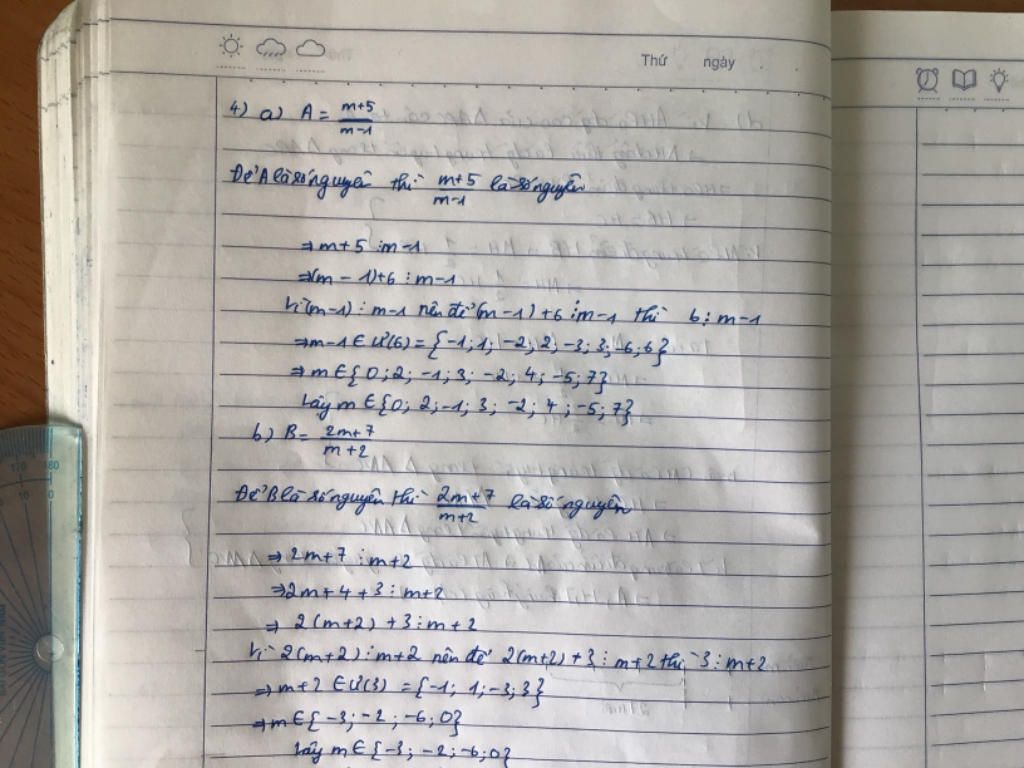 Thứ ngày
4) a) A = m+5/m-1
Để A là số nguyên thì m+5/m-1 là số nguyên
⇒ m+5 ⋮ m-1
⇒ (m-1)+6 ⋮ m-1
Vì (m-1) ⋮ m-1 nên để (m-1)+6 ⋮ m-1 thì 6 ⋮ m-1
⇒ m-1 ∈ Ư(6) = {-1; 1; -2; 2; -3; 3; -6; 6}
⇒ m ∈ {0; 2; -1; 3; -2; 4; -5; 7}
Vậy m ∈ {0; 2; -1; 3; -2; 4; -5; 7}
b) B = 2m+7/m+2
Để B là số nguyên thì 2m+7/m+2 là số nguyên
⇒ 2m+7 ⋮ m+2
⇒ 2m+4+3 ⋮ m+2
⇒ 2(m+2)+3 ⋮ m+2
Vì 2(m+2) ⋮ m+2 nên để 2(m+2)+3 ⋮ m+2 thì 3 ⋮ m+2
⇒ m+2 ∈ Ư(3) = {-1; 1; -3; 3}
⇒ m ∈ {-3; -2; -6; 0}
Vậy m ∈ {-3; -2; -6; 0}
170 180
10 0